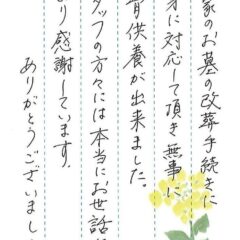 家のお墓の改葬手続きに
才に対応して頂き無事に
骨供養が出来ました。
タッフの方々には本当にお世話に
より感謝しています。
ありがとうございまし